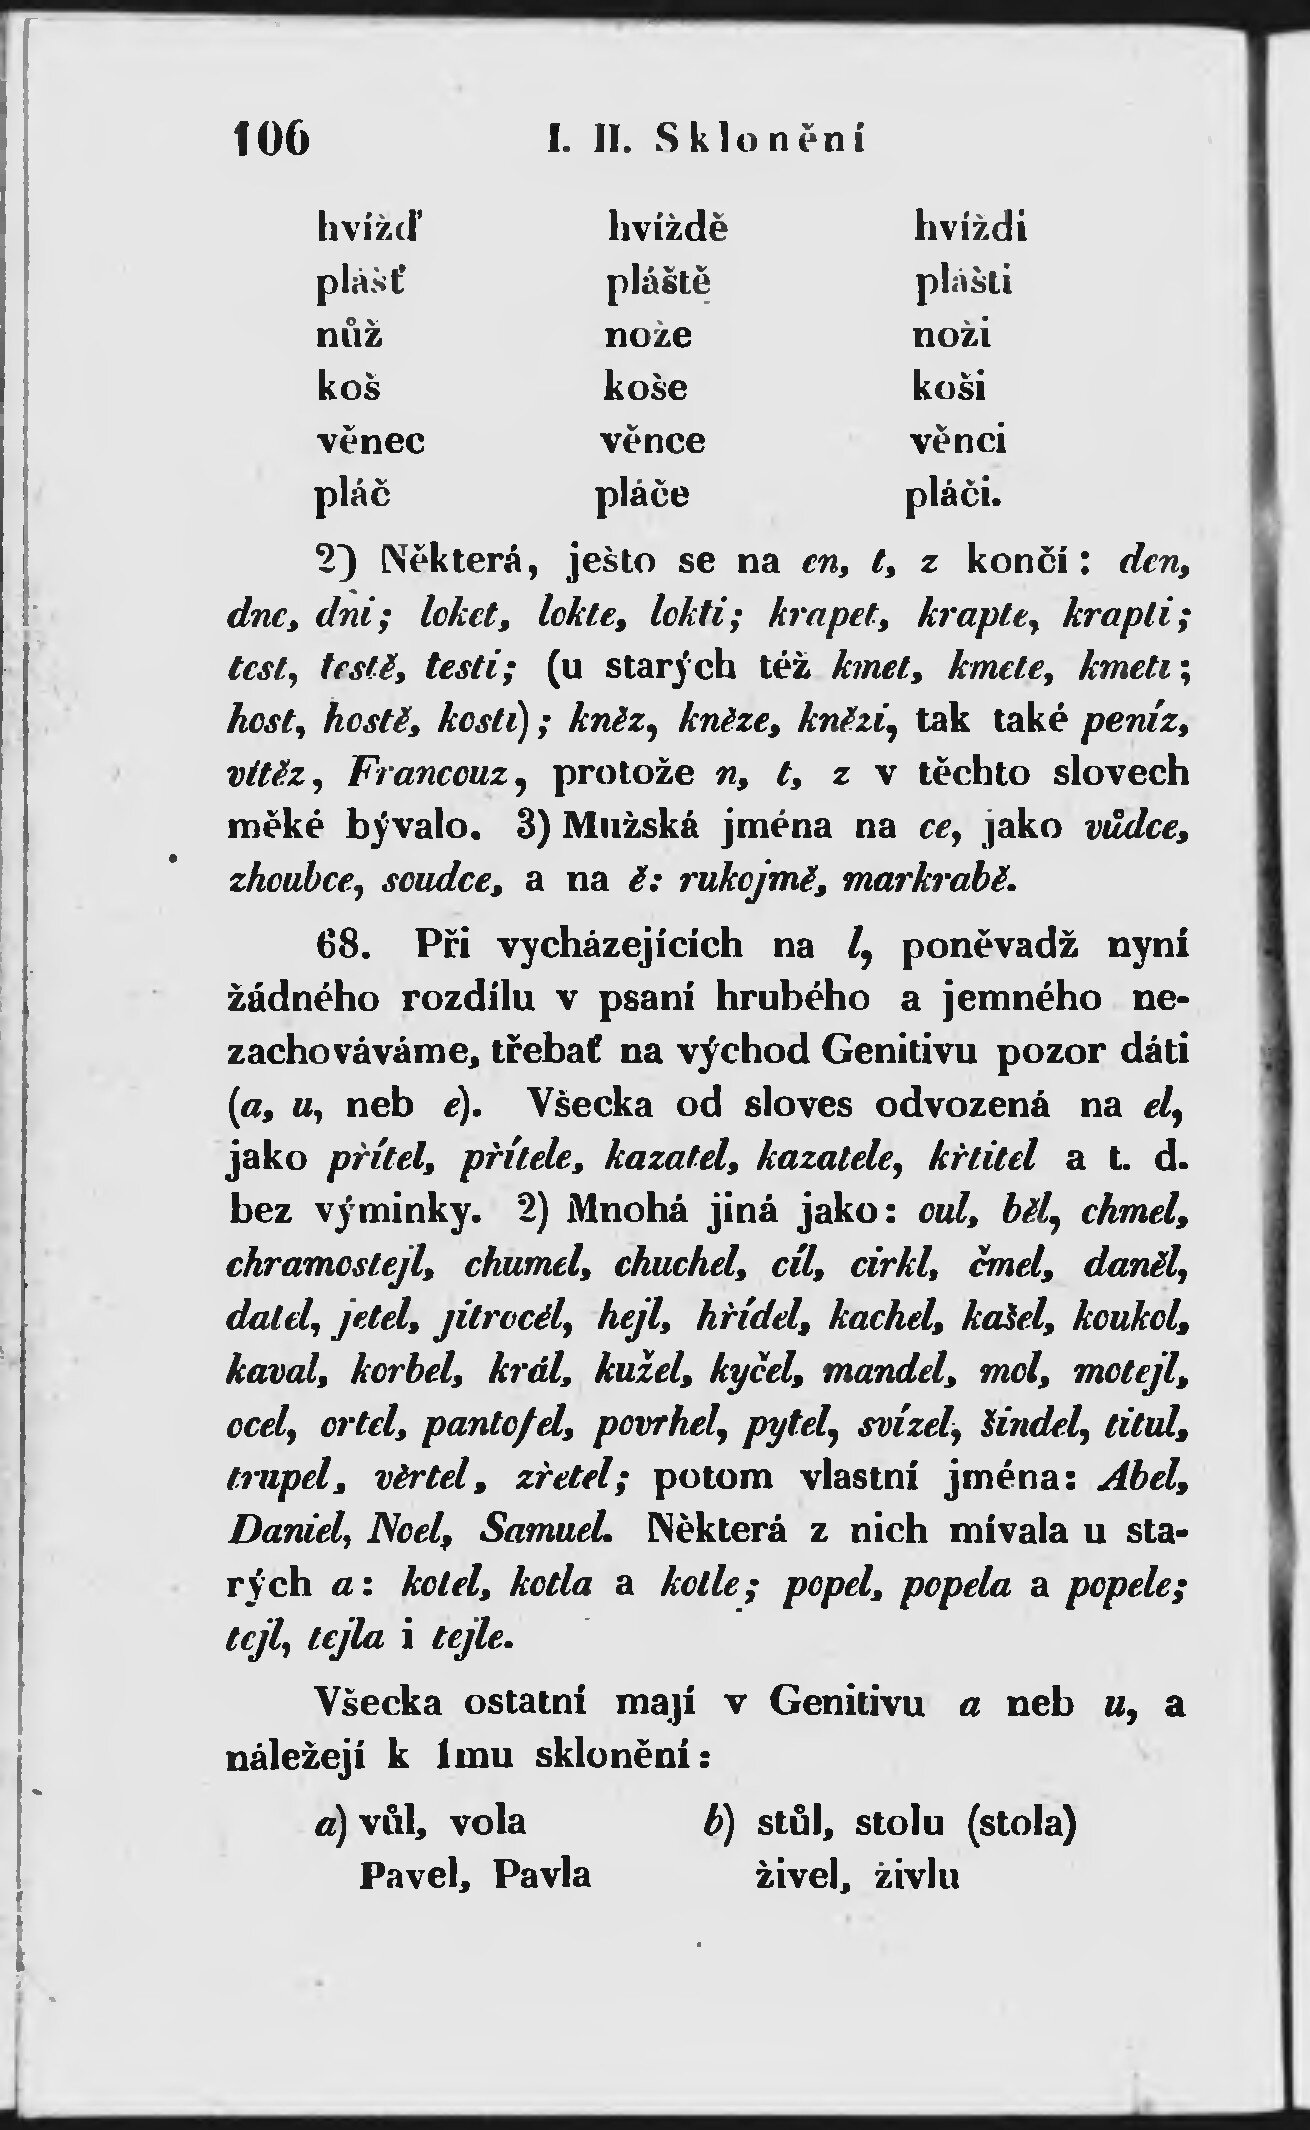 106 I. II. Sklonění
hvížď hvíždě hvíždi
plášť pláště plášti
nůž nože noži
koš koše koši
věnec věnce věnci
pláč pláče pláči.
2) Některá, ješto se na en, t, z končí: den,
dne, dni; loket, lokte, lokti; krapet, krapte, krapti;
test, testě, testi; (u starých též kmet, kmete, kmeti;
host, hostě, hosti); kněz, kněze, knězi, tak také peníz,
vítěz, Francouz, protože n, t, z v těchto slovech
měké bývalo. 3) Mužská jména na ce, jako vůdce,
zhoubce, soudce, a na ě: rukojmě, markrabě.
68. Při vycházejících na l, poněvadž nyní
žádného rozdílu v psaní hrubého a jemného ne-
zachováváme, třebať na východ Genitivu pozor dáti
(a, u, neb e). Všecka od sloves odvozená na el,
jako přítel, přítele, kazatel, kazatele, křtitel a t. d.
bez výminky. 2) Mnohá jiná jako: oul, běl, chmel,
chramostejl, chumel, chuchel, cíl, cirkl, čmel, daněl,
datel, jetel, jitrocél, hejl, hřídel, kachel, kašel, koukol,
kaval, korbel, král, kužel, kyčel, mandel, mol, motejl,
ocel, ortel, pantofel, povrhel, pytel, svízel, šindel, titul,
trupel, věrtel, zřetel; potom vlastní jména: Abel,
Daniel, Noel, Samuel. Některá z nich mívala u sta-
rých a: kotel, kotla a kotle; popel, popela a popele;
tejl, tejla i tejle.
Všecka ostatní mají v Genitivu a neb u, a
náležejí k 1mu sklonění:
a) vůl, vola b) stůl, stolu (stola)
Pavel, Pavla živel, živlu